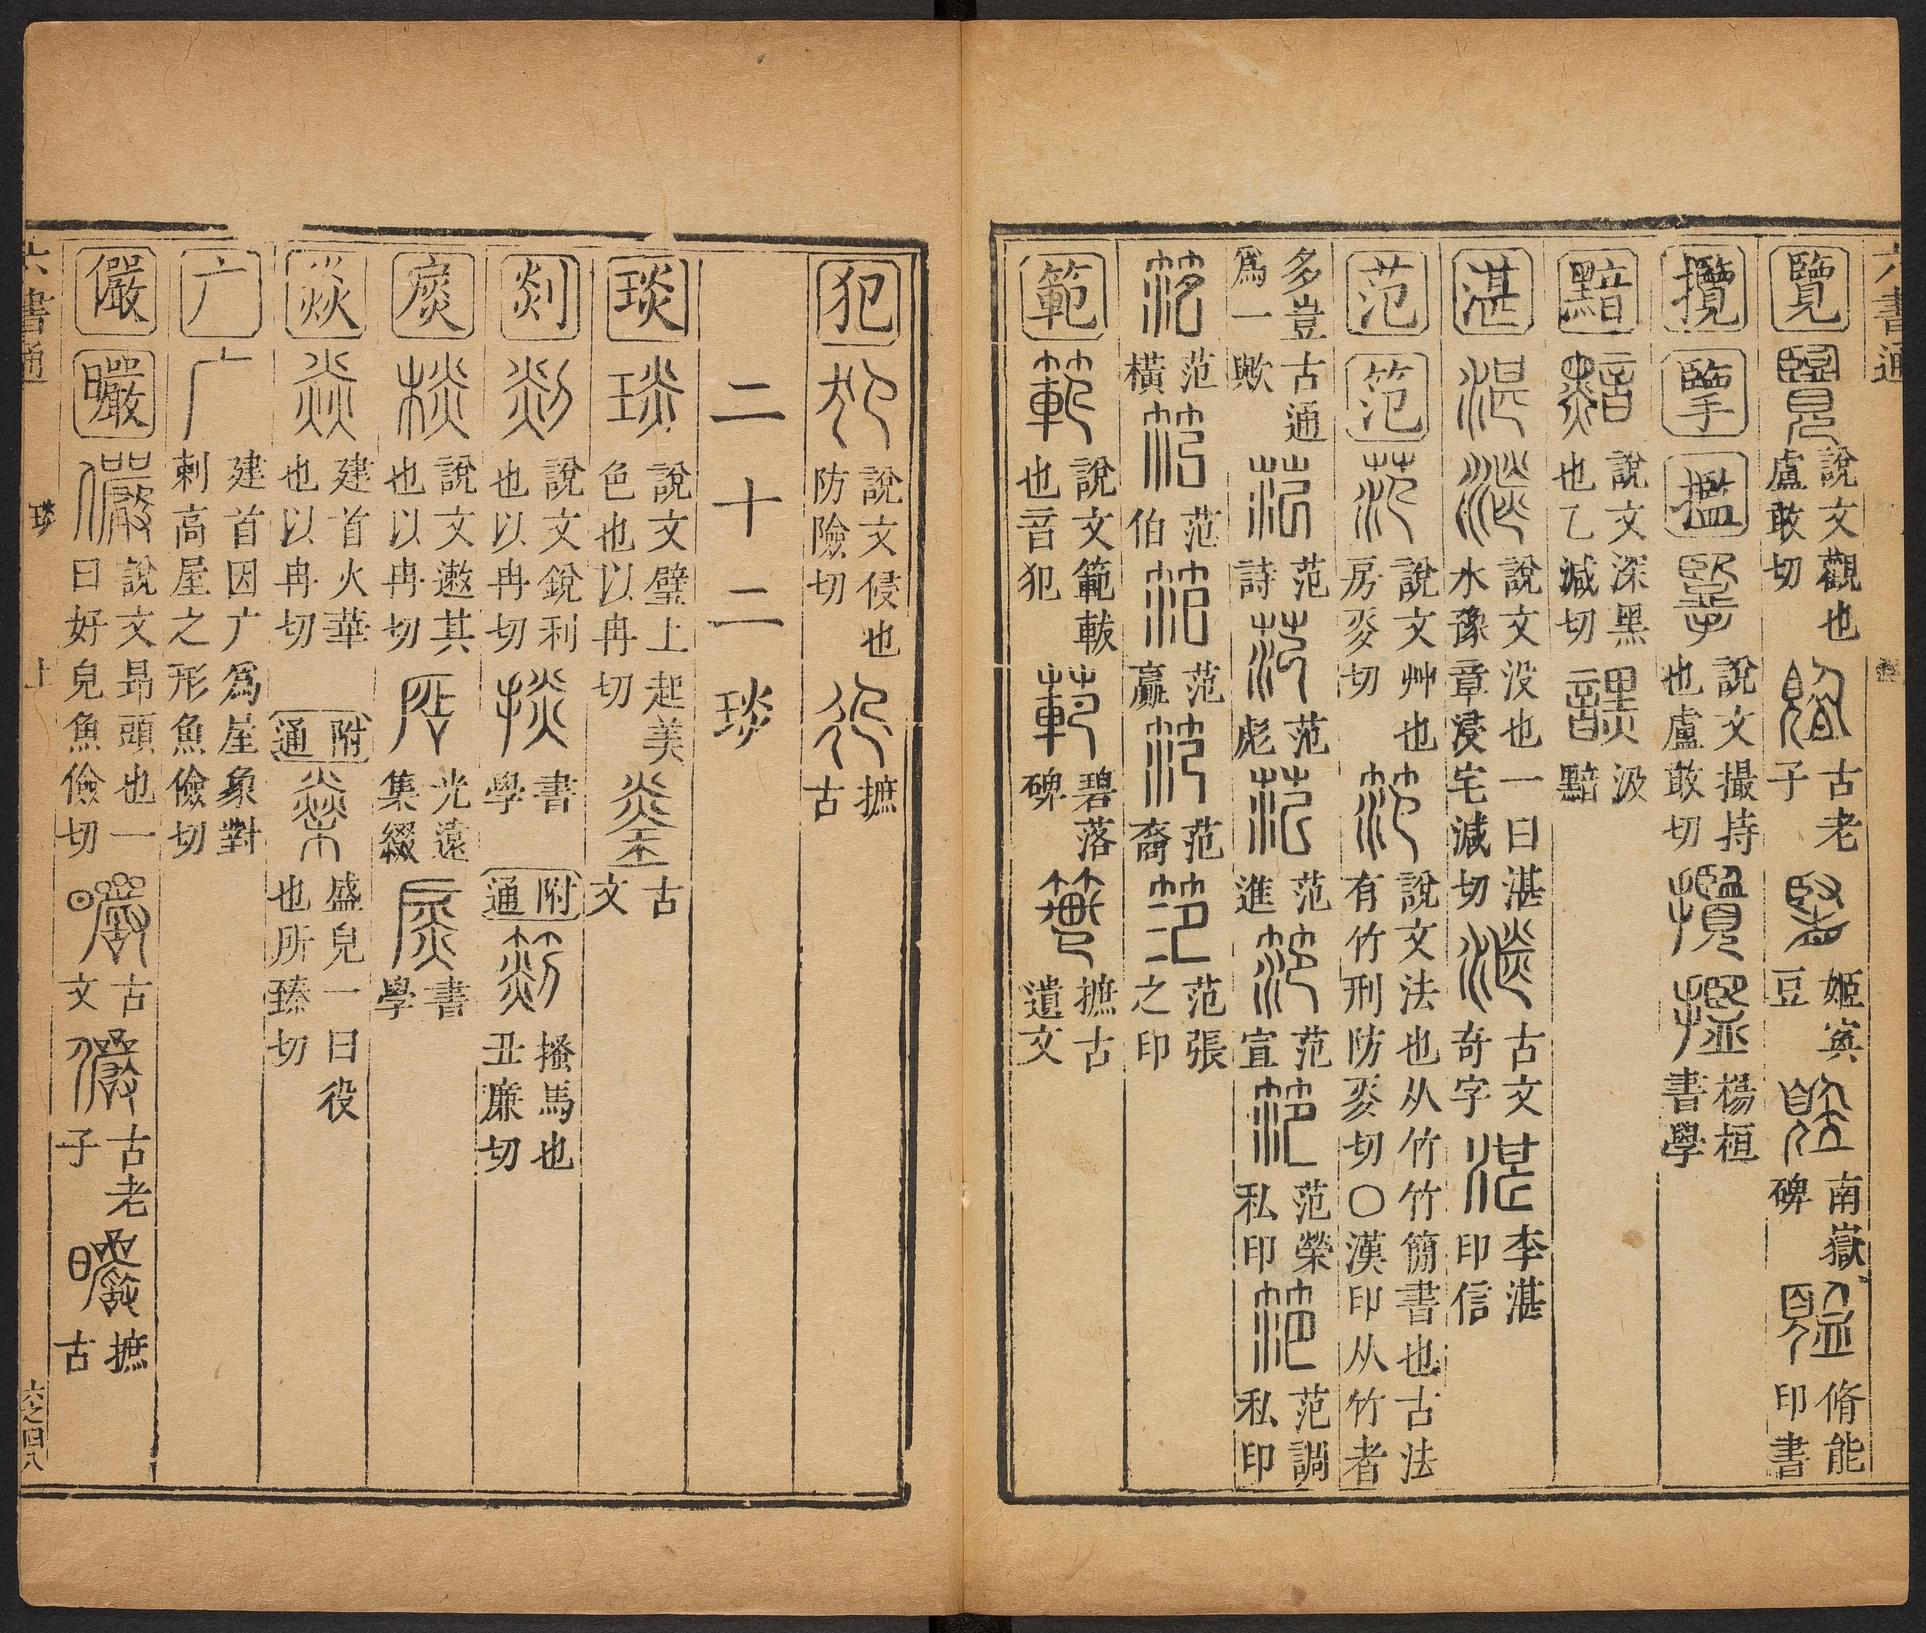 六書通
覽 說文觀也盧敢切 古老子 姬寏豆 南嶽碑 脩能印書
攬 擥 㩜 說文撮持也盧敢切 楊桓書學
黯 說文深黑也乙減切 汲黯
湛 說文没也一曰湛水豫章浸宅減切 古文奇字 李湛印信
范 笵 說文艸也房㚇切 說文法也从竹竹簡書也古法有竹刑防㚇切〇漢印从竹者
多豈古通爲一歟 范詩 范彪 范進 范宣 范榮私印 范調私印
范橫 范伯 范贏 范裔 范張之印
範 說文範軷也音犯 碧落碑 摭古遺文
犯 說文侵也防險切 摭古
二十二琰
琰 說文璧上起美色也以冉切 古文
剡 說文銳利也以冉切 書學 附通 搔馬也丑廉切
扊 說文遬其也以冉切 光遠集綴 書學
焱 建首火華也以冉切 附通 盛皃一曰役也所臻切
广 建首因广爲屋象對剌高屋之形魚儉切
儼 曮 說文昂頭也一曰好皃魚儉切 古文 古老子 摭古
六書通 琰 上 六之四八